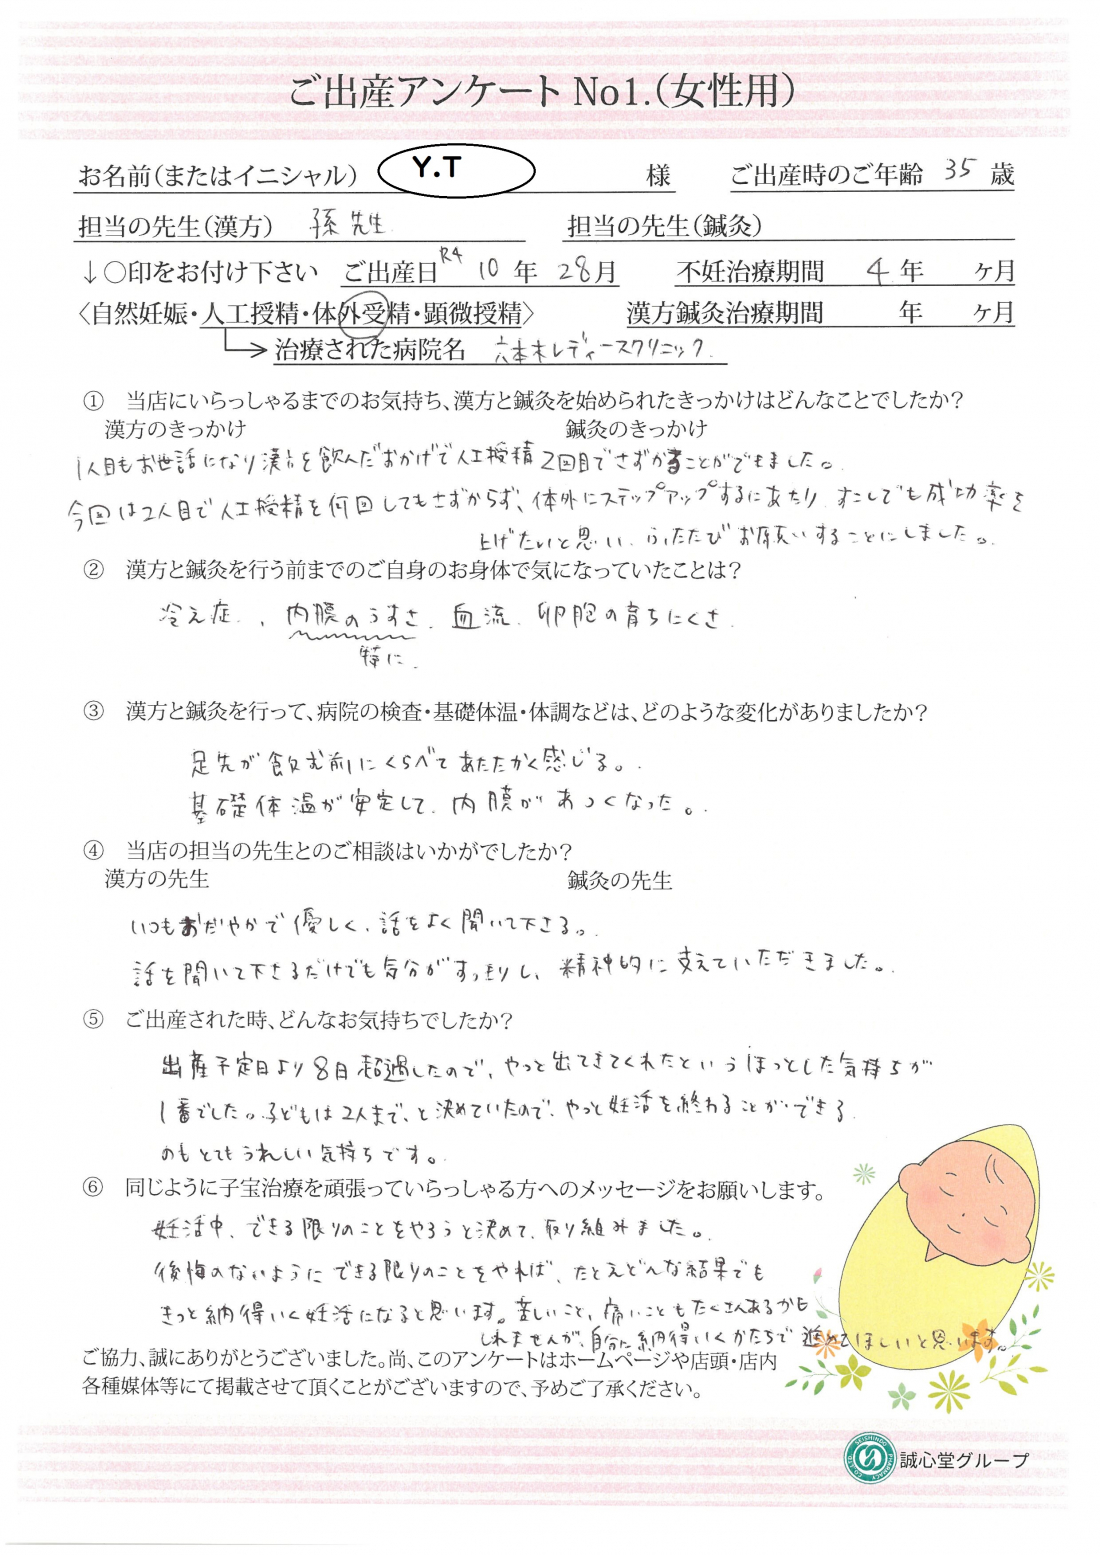 ご出産アンケート No1.(女性用)
お名前(またはイニシャル) Y.T 様 ご出産時のご年齢 35 歳
担当の先生(漢方) 孫先生 担当の先生(鍼灸)
↓〇印をお付け下さい ご出産日 R4 10 年 28 月 不妊治療期間 4 年 ヶ月
〈自然妊娠・人工授精・体外受精・顕微授精〉 漢方鍼灸治療期間 年 ヶ月
治療された病院名 六本木レディースクリニック.
① 当店にいらっしゃるまでのお気持ち、漢方と鍼灸を始められたきっかけはどんなことでしたか?
漢方のきっかけ 鍼灸のきっかけ
1人目もお世話になり漢方を飲んだおかげで人工授精2回目でさずかることができました。
今回は2人目で人工授精を何回してもさずからず、体外にステップアップするにあたり、すこしでも成功率を
上げたいと思い、ふたたびお願いすることにしました。
② 漢方と鍼灸を行う前までのご自身のお身体で気になっていたことは?
冷え症、内膜のうすさ、血流、卵胞の育ちにくさ.
特に.
③ 漢方と鍼灸を行って、病院の検査・基礎体温・体調などは、どのような変化がありましたか?
足先が飲む前にくらべてあたたかく感じる。
基礎体温が安定して、内膜があつくなった。
④ 当店の担当の先生とのご相談はいかがでしたか?
漢方の先生 鍼灸の先生
いつもおだやかで優しく、話をよく聞いて下さる。
話を聞いて下さるだけでも気分がすっきりし、精神的に支えていただきました。
⑤ ご出産された時、どんなお気持ちでしたか?
出産予定日より8日超過したので、やっと出てきてくれたというほっとした気持ちが
1番でした。子どもは2人まで、と決めていたので、やっと妊活を終わることができる
のもとてもうれしい気持ちです。
⑥ 同じように子宝治療を頑張っていらっしゃる方へのメッセージをお願いします。
妊活中、できる限りのことをやろうと決めて、取り組みました。
後悔のないようにできる限りのことをやれば、たとえどんな結果でも
きっと納得いく妊活になると思います。苦しいこと、痛いこともたくさんあるかも
しれませんが、自分に納得いくかたちで進めてほしいと思います。
ご協力、誠にありがとうございました。尚、このアンケートはホームページや店頭・店内
各種媒体等にて掲載させて頂くことがございますので、予めご了承ください。
誠心堂グループ